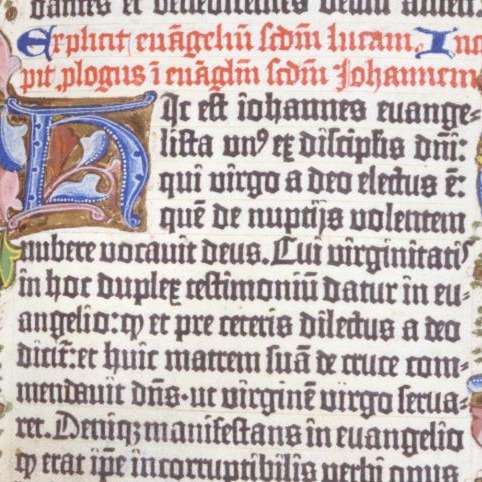 dantes et benedicentes deum amen.
Explicit euāgeliū scdm̄ lucam. Inci
pit ꝓlogus ī euāgliū scdm̄ Johannem
Hic est iohannes euange-
lista unꝰ ex discipl̄is dn̄i:
qui virgo a deo electus ē:
quē de nuptijs volentem
nubere vocauit deus. Cui virginitatis
in hoc duplex testimoniū datur in eu-
angelio: ꝙ et pre ceteris dilectus a deo
dicit̄: et huic matrem suā de cruce com-
mendauit dn̄s. ut virginē virgo serua-
ret. Deniqꝫ manifestans in euangelio
ꝙ erat ip̄e incorruptibilis verbi opus